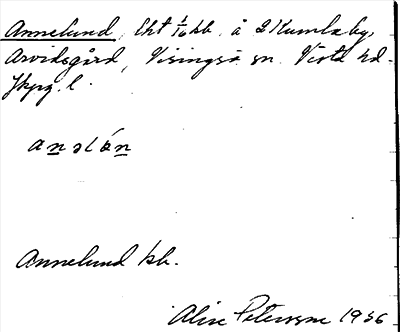 Annelund, lht 1/16 kb. å 2 Kumlaby,
Arvidsgård, Visingsö sn. Vista hd.
Jkpg. l.
anəlán
Annelund kb.
Alice Peterson 1936